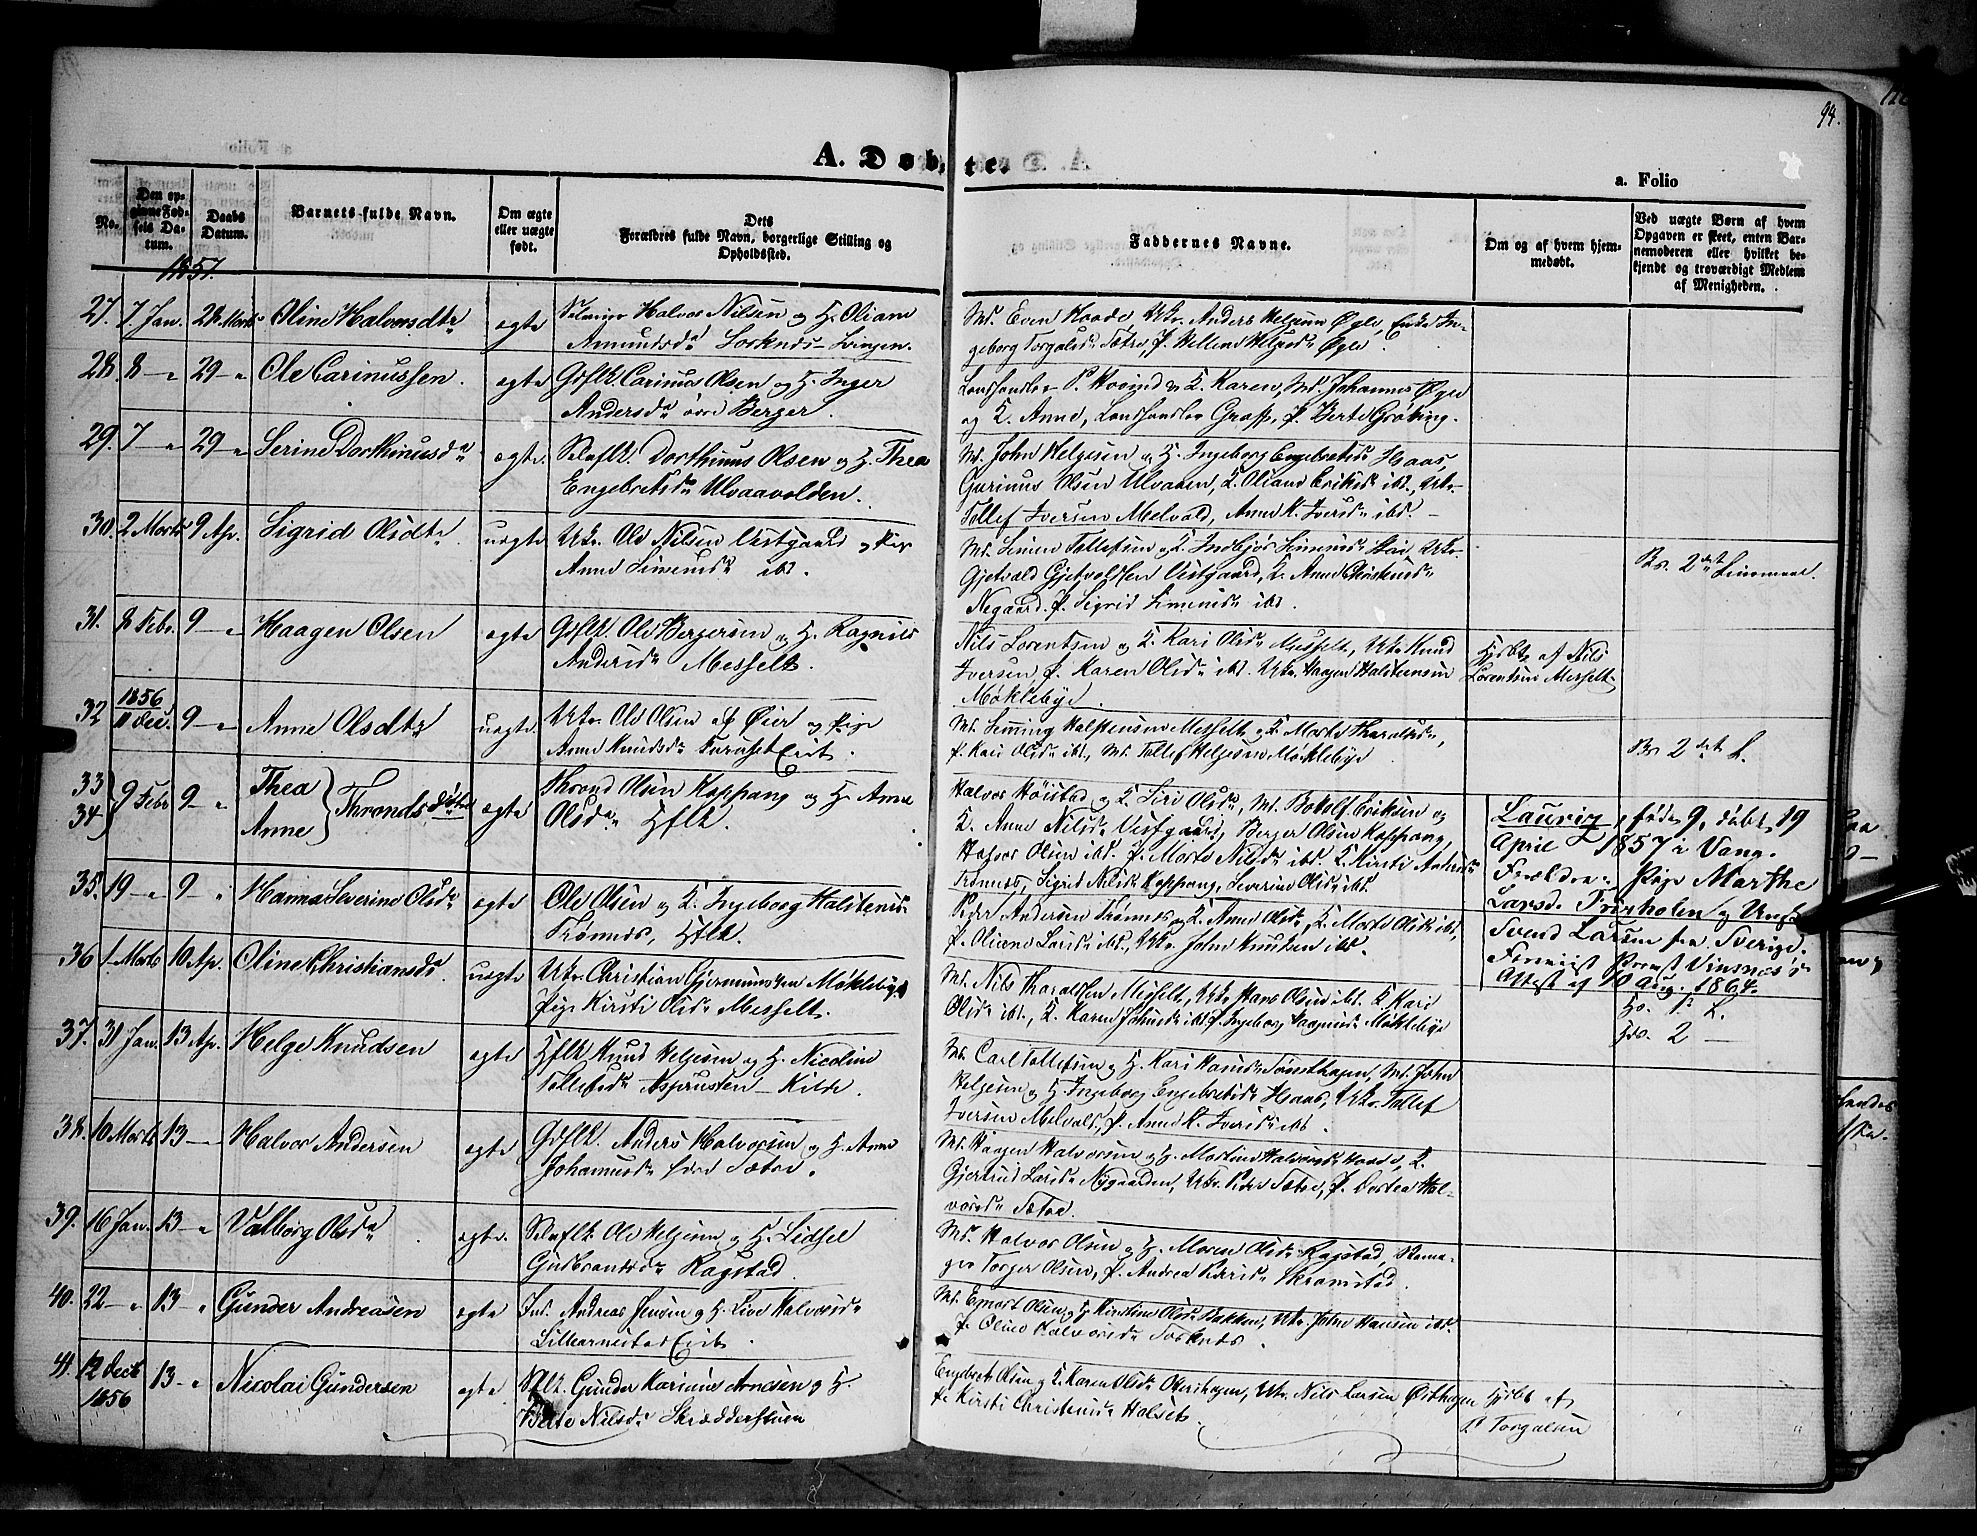 94.
A. Døbte.
a. Folio
No.
Den opgivne Fødsels Datum.
Daabs Datum.
Barnets fulde Navn.
Om ægte eller uægte født.
Dets
Forældres fulde Navn, borgerlige Stilling og
Opholdssted.
Faddernes Navne.
Om og af hvem hjemmedøbt.
Ved uægte Børn af hvem
Opgaven er skeet, enten Barnemoderen eller hvilket bekjendt og troværdigt Medlem
af Menigheden.
1857.
27. 7 Jan. 28 Marts Oline Halvorsdtr ægte Halvor Nilsen og H. Oliane
Amundsdr Sorknes-
Ms. Even Haade, Uk. Anders Helgesen Øgle, Enke In-
geborg Torgalsdr Sætre, P.
28. 8 - " 29 - " Ole Carinussen. ægte Gdflk. Carinus Olsen og H. Inger
Andersdr øvre Berger.
Landhandler P. Hovind og K. Karen, Ms. Johannes Øgle
og K. Anne, Landhandler P. Berte Grøting.
29. 7 - " 29 - " Serine Dorthinusdr ægte. Dorthinus Olsen og H. Thea
Engebretsdr Ulvaavolden.
Ms. John Helgesen og H. Ingeborg Engebretsdr Haas,
Olsen Ulvaaen, K. Oliane Eriksdr ibd., Uk.
Tollef Iversen Melvold, Anne K. Iversdr ibd.
30. 2 Marts 9 Ap. Sigrid Olsdtr uægte Uk. Ole Nilsen Vestgaard og Pige
Anne Simensdr ibd.
Ms. Simen Tollefsen og K. Simensdr Uk.
Gjetvold Vestgaard, K. Anne
Negaard. P. Sigrid Simensdr ibd.
Bs. 2det Leiermaal.
31. 8 Febr. 9 - " Haagen Olsen ægte Gdflk. Ole Bergersen og H. Ragnild
Andersdr Messelt.
Nils Lorentsen og K. Kari Olsdr Messelt, Uk. Knud
Iversen, P. Karen Olsdr ibd. Uk. Haagen Halstensen
Møklebye.
Hjdbt af Nils
Lorentsen Messelt
1856
32 11 Dec. 9 - " Anne Olsdtr uægte Uk. Ole Olsen af Øier og Pige
Anne Knudsdr Furuset Eiet.
Ms. Halstensen Messelt og K. Marte Tharaldsdr,
P. Kari Olsdr ibd., Ms. Tollef Helgesen Møklebye
Bs 2det L.
33
34 9 Febr 9 - " Thea
Anne Thronds døttre ægte Thrond Olsen Koppang og H. Anne
Olsdr Hflk.
Halvor Høistad og K. Siri Olsdr, Ms. Botolf Eriksen og
K. Anne Nilsdr Vestgaard, Berger Olsen Koppang,
Halvor Olsen ibd. P. Marte Nilsdr ibd. K. Kirsti Andersdr
Trønnes, Sigrid Nilsdr Koppang, Severine Olsdr ibd.
Lauriz, født 9, døbt 19
April 1857 i Vang.
Forældre: Pige Marthe
Larsd. Furuholen og Ungk
Svend Larsen fra Sverige.
Attest af 10 Aug. 1864.
35. 19 - " 9 - " Hanna Severine Olsdr ægte Ole Olsen og K. Ingeborg Halstensdr
Trønnes, Hflk.
Peder Andersen Trønnes og K. Anne Olsdr, K. Marte Olsdr ibd.,
P. Oliane Larsdr ibd., Uk. John Knudsen ibd.
36 1 Marts 10 Ap. Oline Christiansdr uægte Uk. Christian Gjermundsen Møklebye
Pige Kirsti Olsdr Messelt.
Ms. Nils Tharaldsen Messelt, Uk. Hans Olsen ibd. K. Kari
Olsdr ibd., K. Karen Johnsdr ibd. P. Ingeborg Haagensdr Møklebye
1ste L.
2 -
37. 31 Jan. 13 Ap. Helge Knudsen ægte Hflk Knud Helgesen og H. Nicoline
Tollefsdr Asprusten - Kilde.
Ms. Carl Tollefsen og H. Kari Hansdr Tomthagen, Ms. John
Helgesen og H. Ingeborg Engebretsdr Haas, Uk. Tollef
Iversen Melvold, P. Anne K. Iversdr ibd.
38. 10 Marts 13 - " Halvor Andersen ægte Gdflk. Anders Halvorsen og H. Anne
Johannesdr Sætre.
Ms. Haagen Halvorsen og H. Martine Halvorsdr Haade, K.
Gjertrud Larsdr Nygaarden, Uk. Peder Sætre, P. Dortea Hal-
vorsdr Sætre.
39. 16 Jan. 13 - " Valborg Olsdr ægte. Ole Helgesen og H. Lidsel
Gulbrandsdr Rogstad.
Ms. Halvor Olsen og H. Maren Olsdr Rogstad,
Torger Olsen, P. Andrea Pedersdr Skramstad.
40. 22 - " 13 - " Gunder Andreasen ægte Ind. Andreas Jensen og H. Live Halvorsdr
Eiet.
Ms. Olsen og H. Kirstine Olsdr Bakken, Uk. John Hansen ibd.
P. Oline Halvorsdr Sorknes.
41. 12 Decb
1856 13 - " Nicolai Gundersen ægte Gunder Karinus Arnesen og H.
Berte Nilsdr Skrædderstuen
Engebret Olsen og K. Karen Olsdr Uk. Nils Larsen Østhagen
P. Kirsti Christensdr Halset.
Hjdbt af
P. Torgalsen